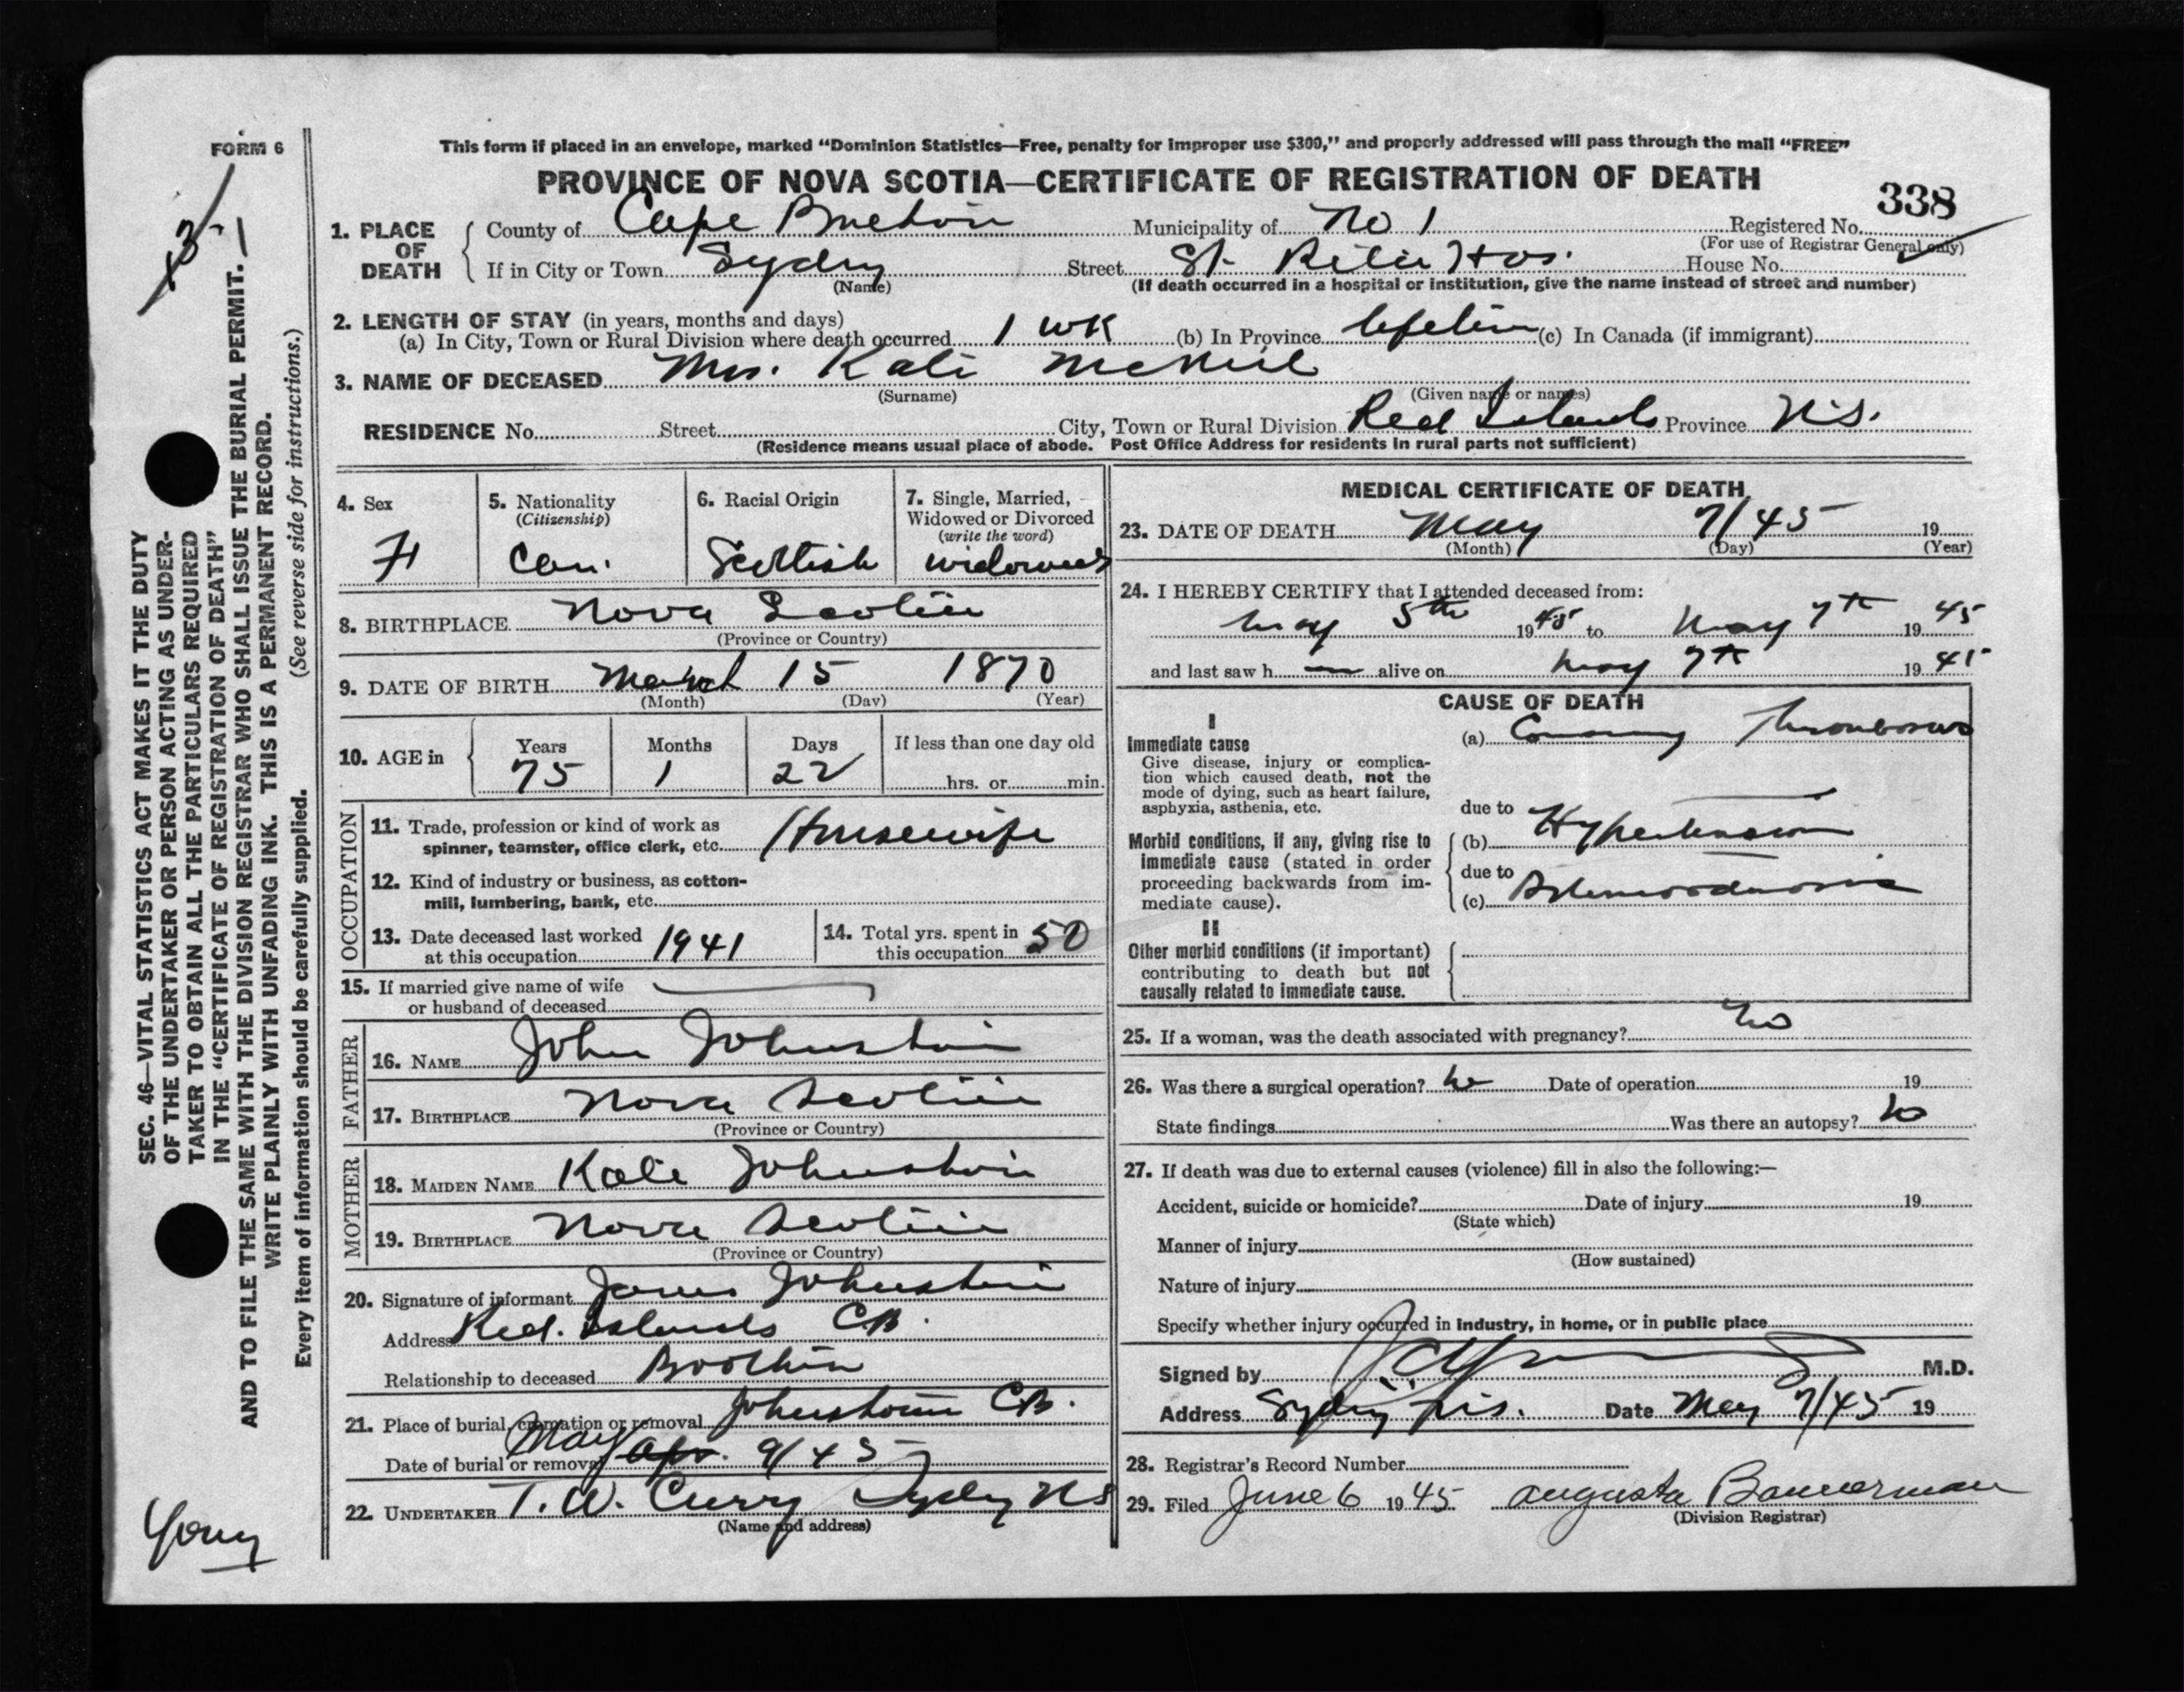 FORM 6
This form if placed in an envelope, marked “Dominion Statistics—Free, penalty for improper use $300,” and properly addressed will pass through the mail “FREE”
PROVINCE OF NOVA SCOTIA—CERTIFICATE OF REGISTRATION OF DEATH
338
1. PLACE OF DEATH
County of Cape Breton Municipality of No 1 Registered No.
(For use of Registrar General only)
If in City or Town Sydny Street St. Rita Hos. House No.
(Name) (If death occurred in a hospital or institution, give the name instead of street and number)
2. LENGTH OF STAY (in years, months and days)
(a) In City, Town or Rural Division where death occurred 1 wk (b) In Province lifetim (c) In Canada (if immigrant)
3. NAME OF DECEASED Mrs. Kate McNeil
(Surname) (Given name or names)
RESIDENCE No. Street City, Town or Rural Division Red Islands Province N.S.
(Residence means usual place of abode. Post Office Address for residents in rural parts not sufficient)
4. Sex
F
5. Nationality
(Citizenship)
Can.
6. Racial Origin
Scottish
7. Single, Married,
Widowed or Divorced
(write the word)
widowed
8. BIRTHPLACE Nova Scotia
(Province or Country)
9. DATE OF BIRTH March 15 1870
(Month) (Day) (Year)
10. AGE in
Years Months Days If less than one day old
75 1 22 hrs. or min.
OCCUPATION
11. Trade, profession or kind of work as
spinner, teamster, office clerk, etc. Housewife
12. Kind of industry or business, as cotton-
mill, lumbering, bank, etc.
13. Date deceased last worked
at this occupation 1941
14. Total yrs. spent in
this occupation 50
15. If married give name of wife
or husband of deceased
FATHER
16. NAME John Johnston
17. BIRTHPLACE Nova Scotia
(Province or Country)
MOTHER
18. MAIDEN NAME Kate Johnston
19. BIRTHPLACE Nova Scotia
(Province or Country)
20. Signature of informant James Johnston
Address Red. Islands C.B.
Relationship to deceased Brother
21. Place of burial, cremation or removal Johnstown C.B.
Date of burial or removal May Apr. 9/45
22. UNDERTAKER T. W. Curry Sydny N S
(Name and address)
MEDICAL CERTIFICATE OF DEATH
23. DATE OF DEATH May 7/45 19
(Month) (Day) (Year)
24. I HEREBY CERTIFY that I attended deceased from:
May 5th 1945 to May 7th 1945
and last saw h alive on May 7th 1945
CAUSE OF DEATH
I
Immediate cause
Give disease, injury or complica-
tion which caused death, not the
mode of dying, such as heart failure,
asphyxia, asthenia, etc.
(a) Coronary Thrombosis
due to
Morbid conditions, if any, giving rise to
immediate cause (stated in order
proceeding backwards from im-
mediate cause).
(b) Hypertension
due to
(c)
II
Other morbid conditions (if important)
contributing to death but not
causally related to immediate cause.
25. If a woman, was the death associated with pregnancy? No
26. Was there a surgical operation? No Date of operation 19
State findings Was there an autopsy? No
27. If death was due to external causes (violence) fill in also the following:—
Accident, suicide or homicide? Date of injury 19
(State which)
Manner of injury
(How sustained)
Nature of injury
Specify whether injury occurred in industry, in home, or in public place
Signed by M.D.
Address Sydny N.S. Date May 7/45 19
28. Registrar's Record Number
29. Filed June 6 1945 Augusta Bannerman
(Division Registrar)
SEC. 46—VITAL STATISTICS ACT MAKES IT THE DUTY
OF THE UNDERTAKER OR PERSON ACTING AS UNDER-
TAKER TO OBTAIN ALL THE PARTICULARS REQUIRED
IN THE “CERTIFICATE OF REGISTRATION OF DEATH”
AND TO FILE THE SAME WITH THE DIVISION REGISTRAR WHO SHALL ISSUE THE BURIAL PERMIT.
WRITE PLAINLY WITH UNFADING INK. THIS IS A PERMANENT RECORD.
Every item of information should be carefully supplied. (See reverse side for instructions.)